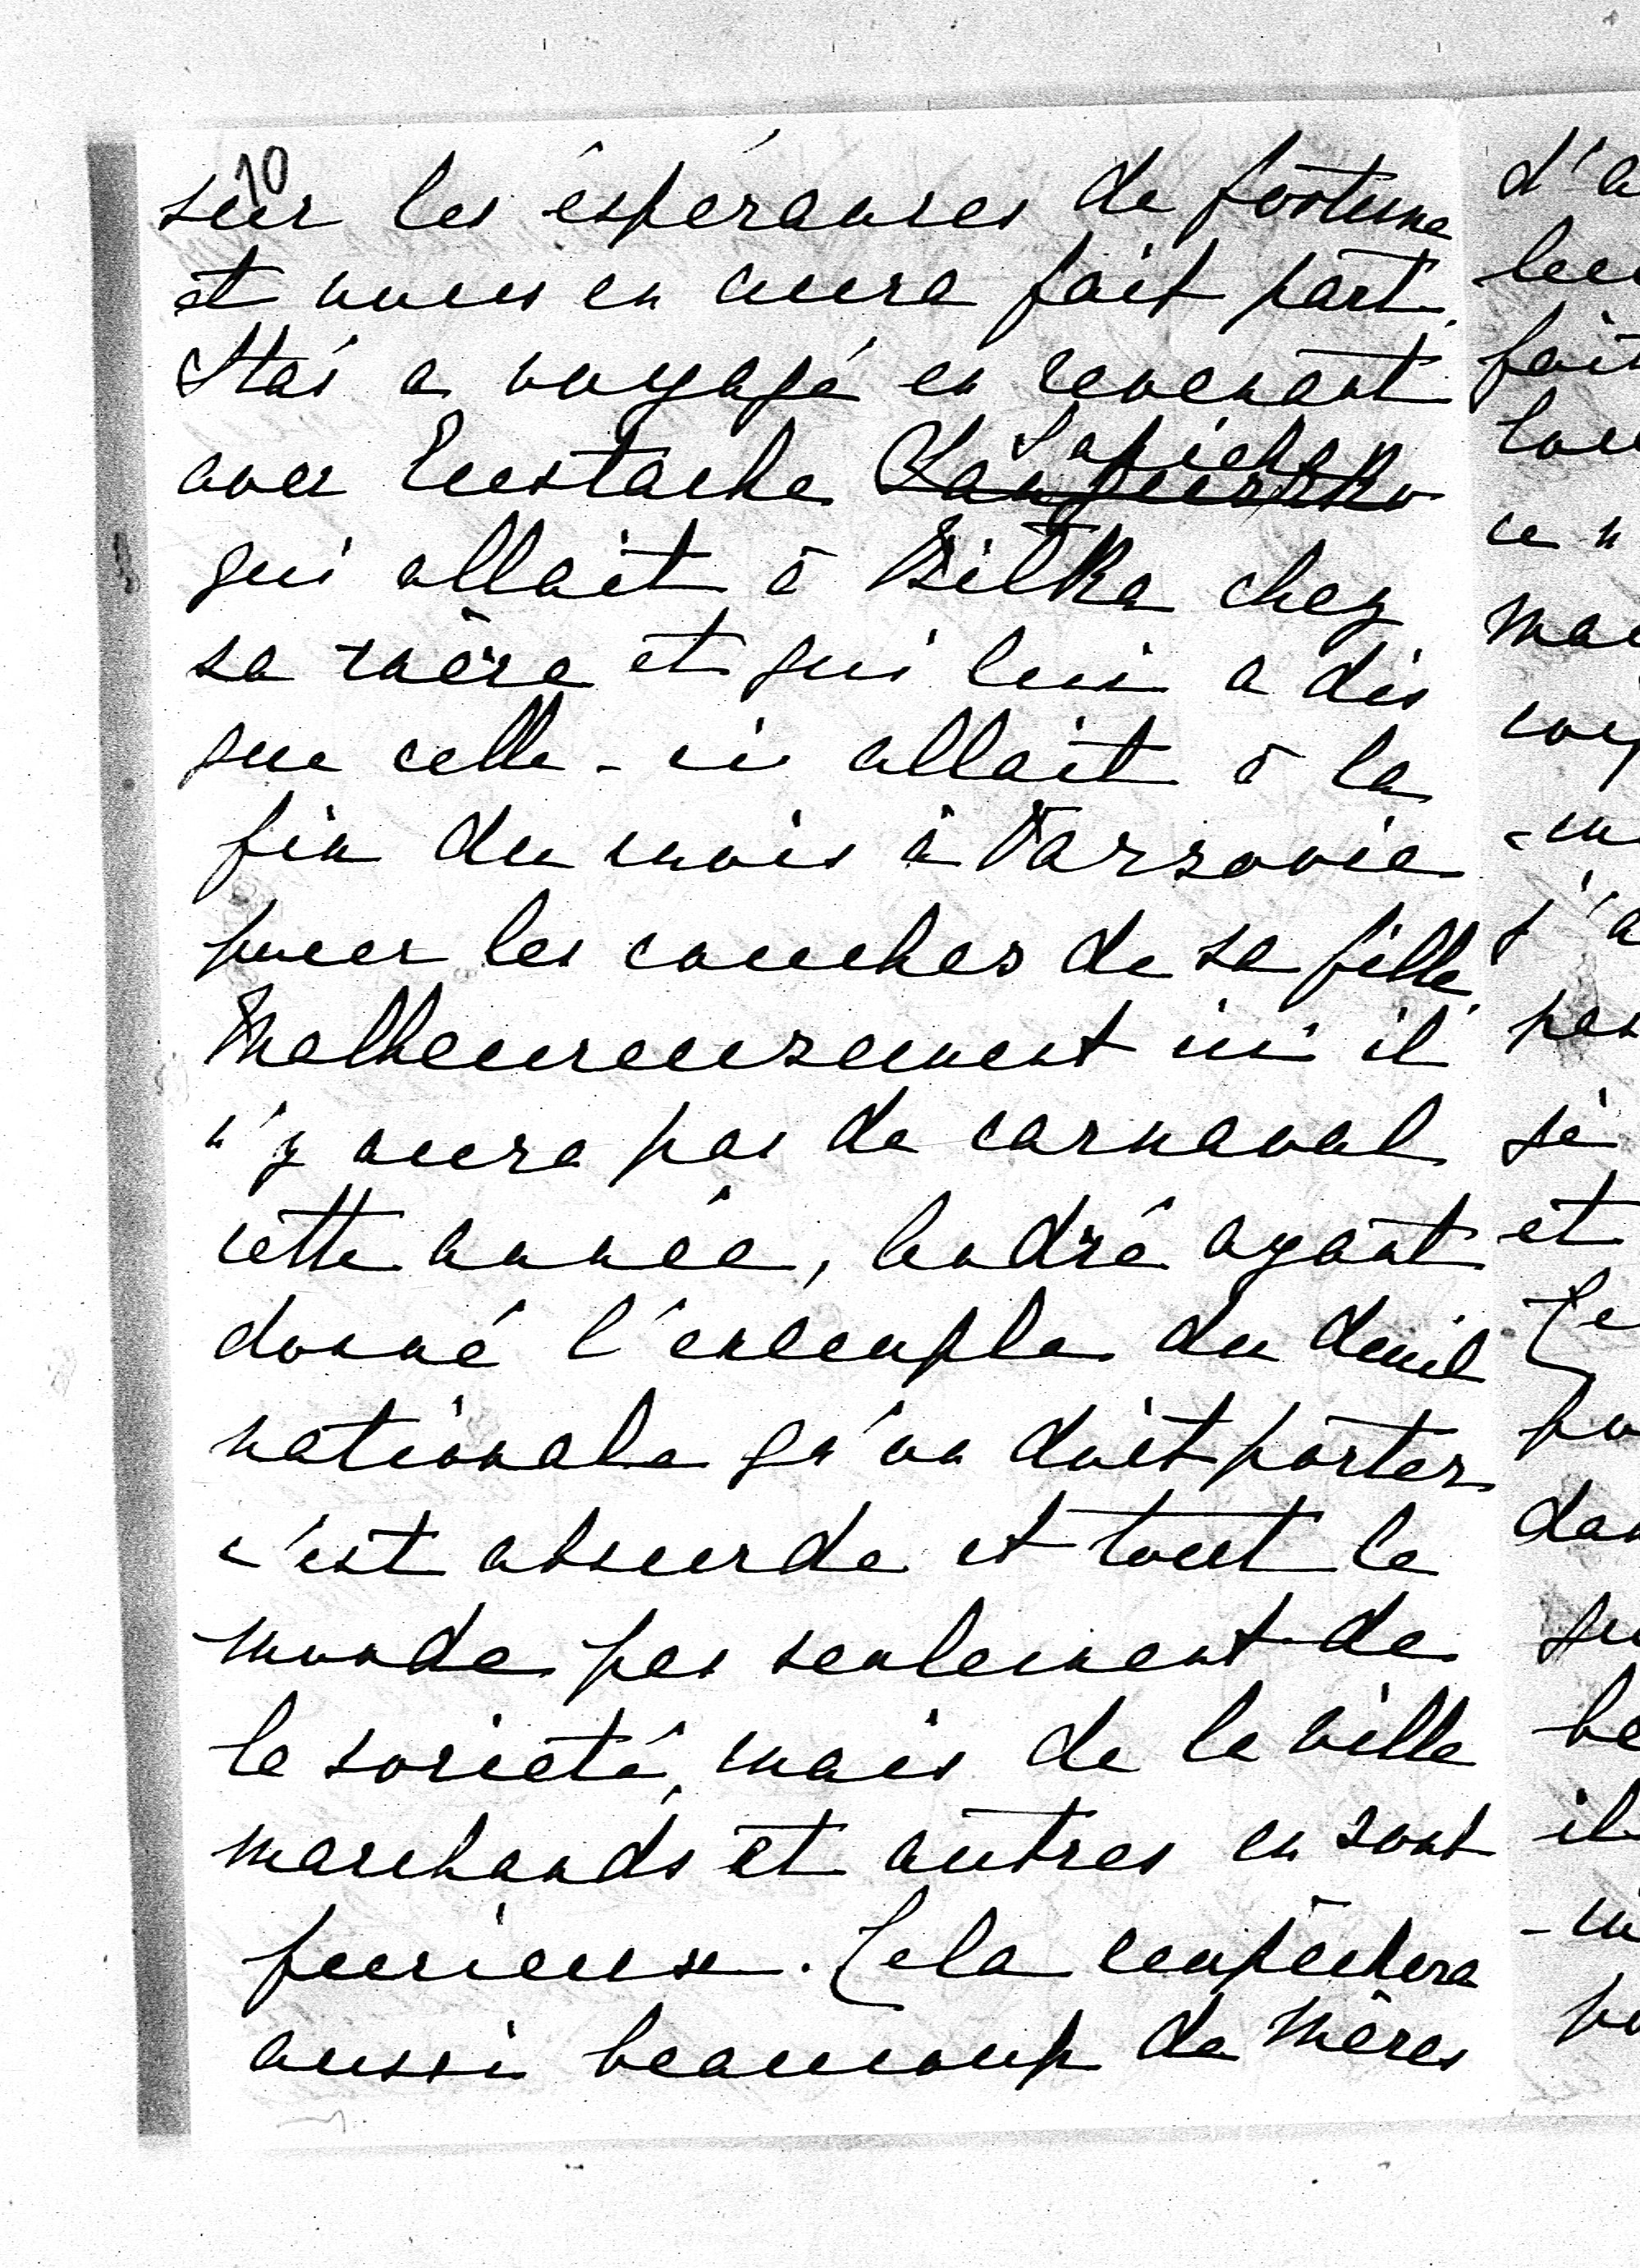 10
sur les éspérances de fortune
et nous en aura fait part.
Staś a voyagé en revenant
avec Eustache Sapieha
qui allait à Bilka chez
sa mère et qui lui a dis
que celle-ci allait à la
fin du mois à Varsovie
pour les couches de sa fille.
Malheureusement ici il
n'y aura pas de carnaval
cette année, André ayant
donné l'exemple du deuil
nationale qu'on doit porter
c'est absurde et tout le
monde pas seulement de
la societé, mais de la ville
marchands et autres en sont
furieux. Cela empêchera
aussi beaucoup de Mères
d'a
fait
ce n
j'a
pas
si
et
il